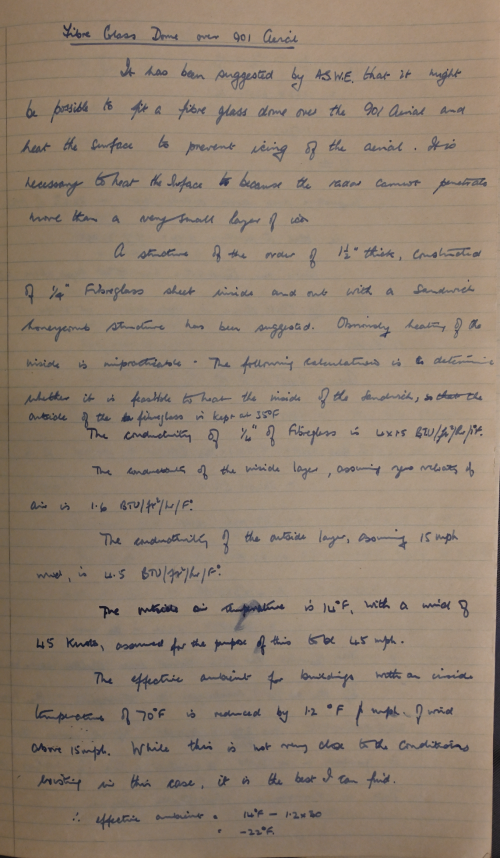 Fibre Glass Dome over 901 Aerial
It has been suggested by A.S.W.E. that it might
be possible to fit a fibre glass dome over the 901 Aerial and
heat the surface to prevent icing of the aerial. It is
necessary to heat the surface because the radar cannot penetrate
more than a very small layer of ice
A structure of the order of 1½" thick, constructed
of ¼" Fibreglass sheet inside and out with a sandwich
honeycomb structure has been suggested. Obviously heating of the
inside is impracticable. The following calculations is to determine
whether it is feasible to heat the inside of the sandwich, so that the
outside of the fibreglass is kept at 35°F
The conductivity of ¼" of Fibreglass is BTU/ft²/hr/F°.
The conductivity of the inside layer, assuming zero velocity of
air is 1.6 BTU/ft²/hr/F°.
The conductivity of the outside layer, assuming 15 mph
wind, is 4.5 BTU/ft²/hr/F°.
The outside air temperature is 14°F, with a wind of
45 Knots, assumed for the purpose of this to be 45 mph.
The effective ambient for buildings with an inside
temperature of 70°F is reduced by 1.2 °F / mph. of wind
above 15 mph. While this is not very close to the conditions
existing in this case, it is the best I can find.
∴ effective ambient = 14°F - 1.2 x 30
= -22°F.